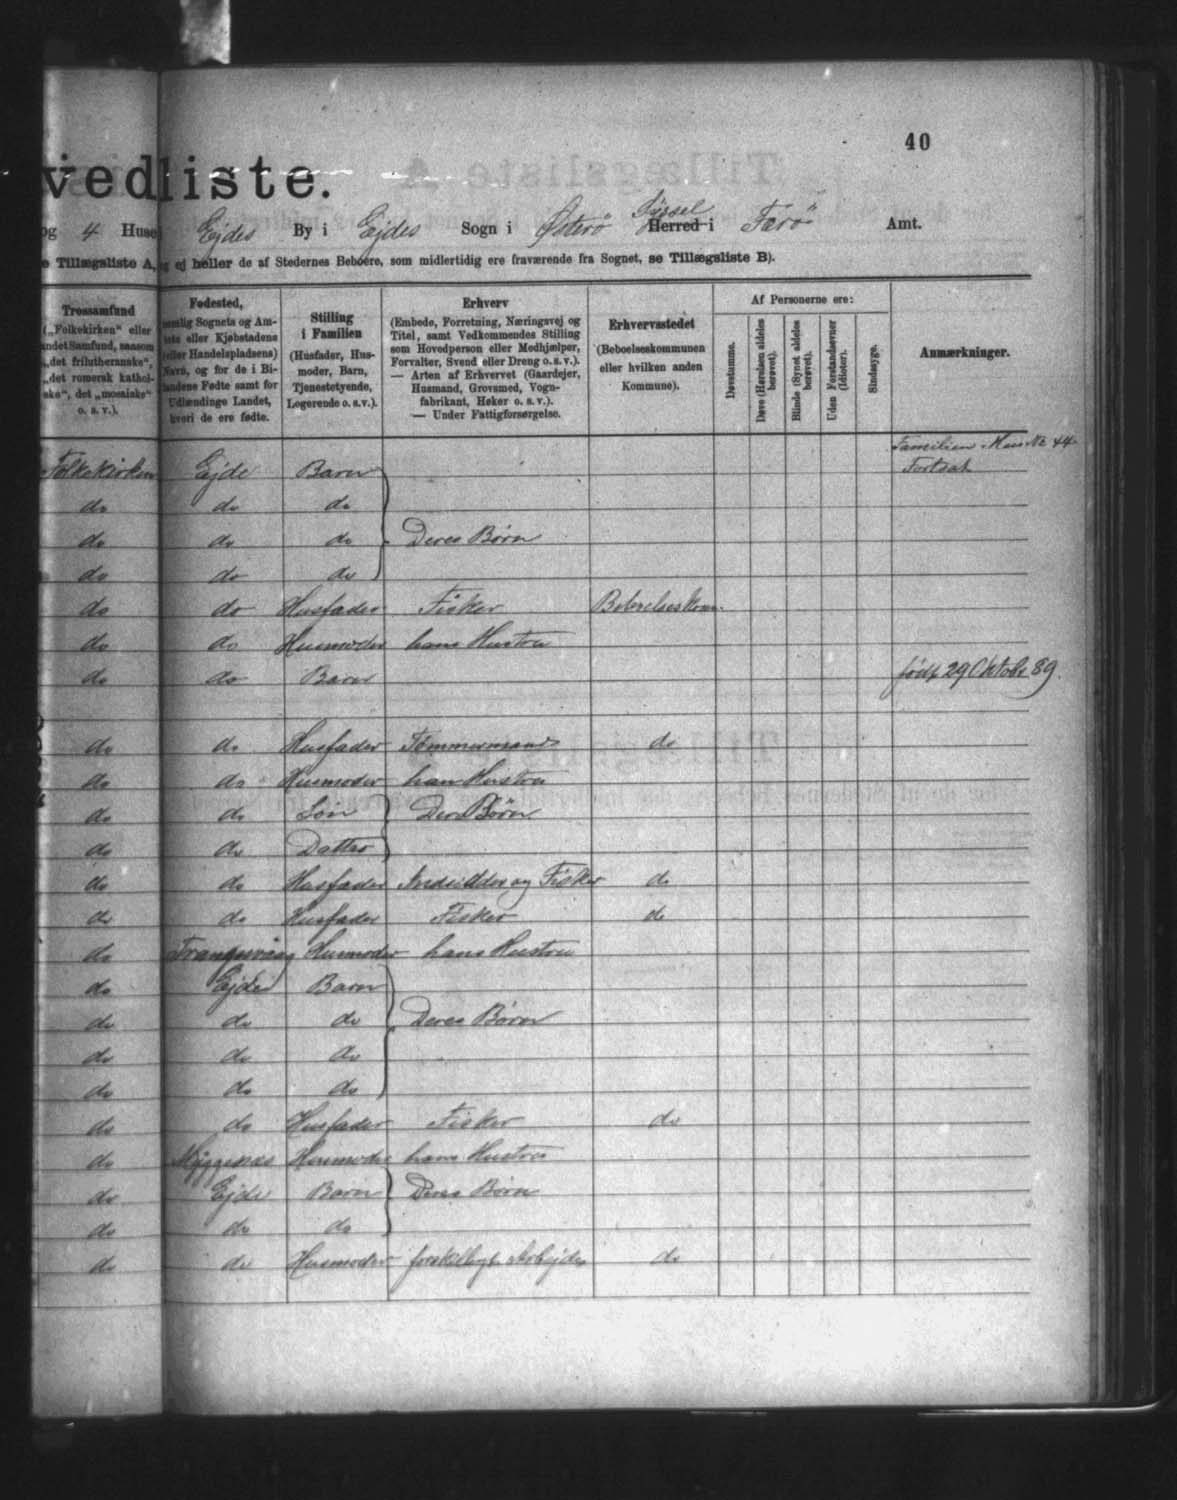 40
vedliste.
og 4 Huse Ejdes By i Ejdes Sogn i Østerö Syssel Herred i Færö Amt.
e Tillægsliste A, og ej heller de af Stedernes Beboere, som midlertidig ere fraværende fra Sognet, se Tillægsliste B).
Trossamfund
(„Folkekirken“ eller
andet Samfund, saasom
„det frilutheranske“,
„det romersk kathol-
ske“, det „mosaiske“
o. s. v.).
Fødested,
nemlig Sognets og Am-
tets eller Kjøbstadens
(eller Handelspladsens)
Navn, og for de i Bi-
landene Fødte samt for
Udlændinge Landet,
hvori de ere fødte.
Stilling
i Familien
(Husfader, Hus-
moder, Barn,
Tjenestetyende,
Logerende o. s. v.).
Erhverv
(Embede, Forretning, Næringsvej og
Titel, samt Vedkommendes Stilling
som Hovedperson eller Medhjælper,
Forvalter, Svend eller Dreng o. s. v.).
— Arten af Erhvervet (Gaardejer,
Husmand, Grovsmed, Vogn-
fabrikant, Høker o. s. v.).
— Under Fattigforsørgelse.
Erhvervsstedet
(Beboelseskommunen
eller hvilken anden
Kommune).
Af Personerne ere:
Døvstumme.
Døve (Hørelsen aldeles
berøvet).
Blinde (Synet aldeles
berøvet).
Uden Forstandsevner
(Idioter).
Sindssyge.
Anmærkninger.
Familien Hus No 44
Folkekirken Ejde Barn Fortsat
do do do
do do do Deres Børn
do do do
do do Husfader Fisker Beboelseskom.
do do Husmoder hans Hustru
do do Barn født 29 Oktobr 89.
do do Husfader Tømmermand do
do do Husmoder hans Hustru
do do Sön Deres Börn
do do Datter
do do Husfader Indsidder og Fisker do
do do Husfader Fisker do
do Trangisvaag Husmoder hans Hustru
do Ejde Barn
do do do Deres Børn
do do do
do do do
do do Husfader Fisker do
do Myggenæs Husmoder hans Hustru
do Ejde Barn Deres Børn
do do do
do do Husmoder forskelligt Arbejde do